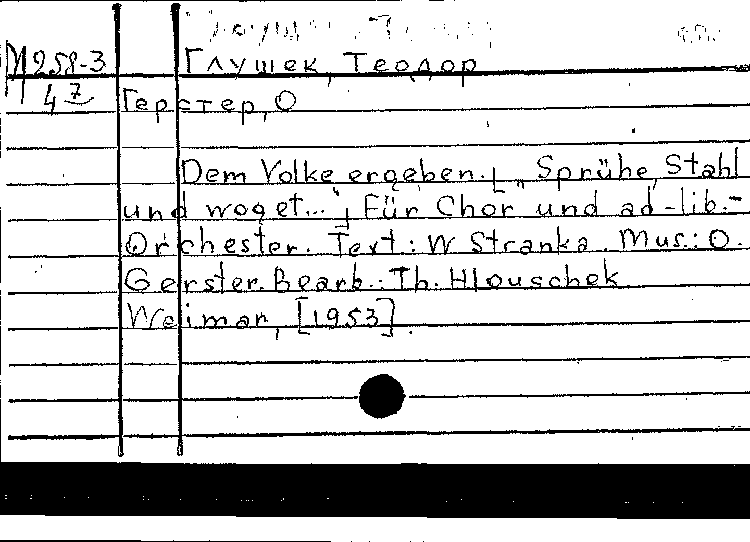 М258-3 Глушек, Теодор
4 7 Герстер, О
Dem Volke ergeben. [„Sprühe, Stahl
und woget...“] Für Chor und ad-lib.-
Orchester. Text: W Stranka. Mus.: O.
Gerster. Bearb.: Th. Hlouschek
Weimar, [1953].